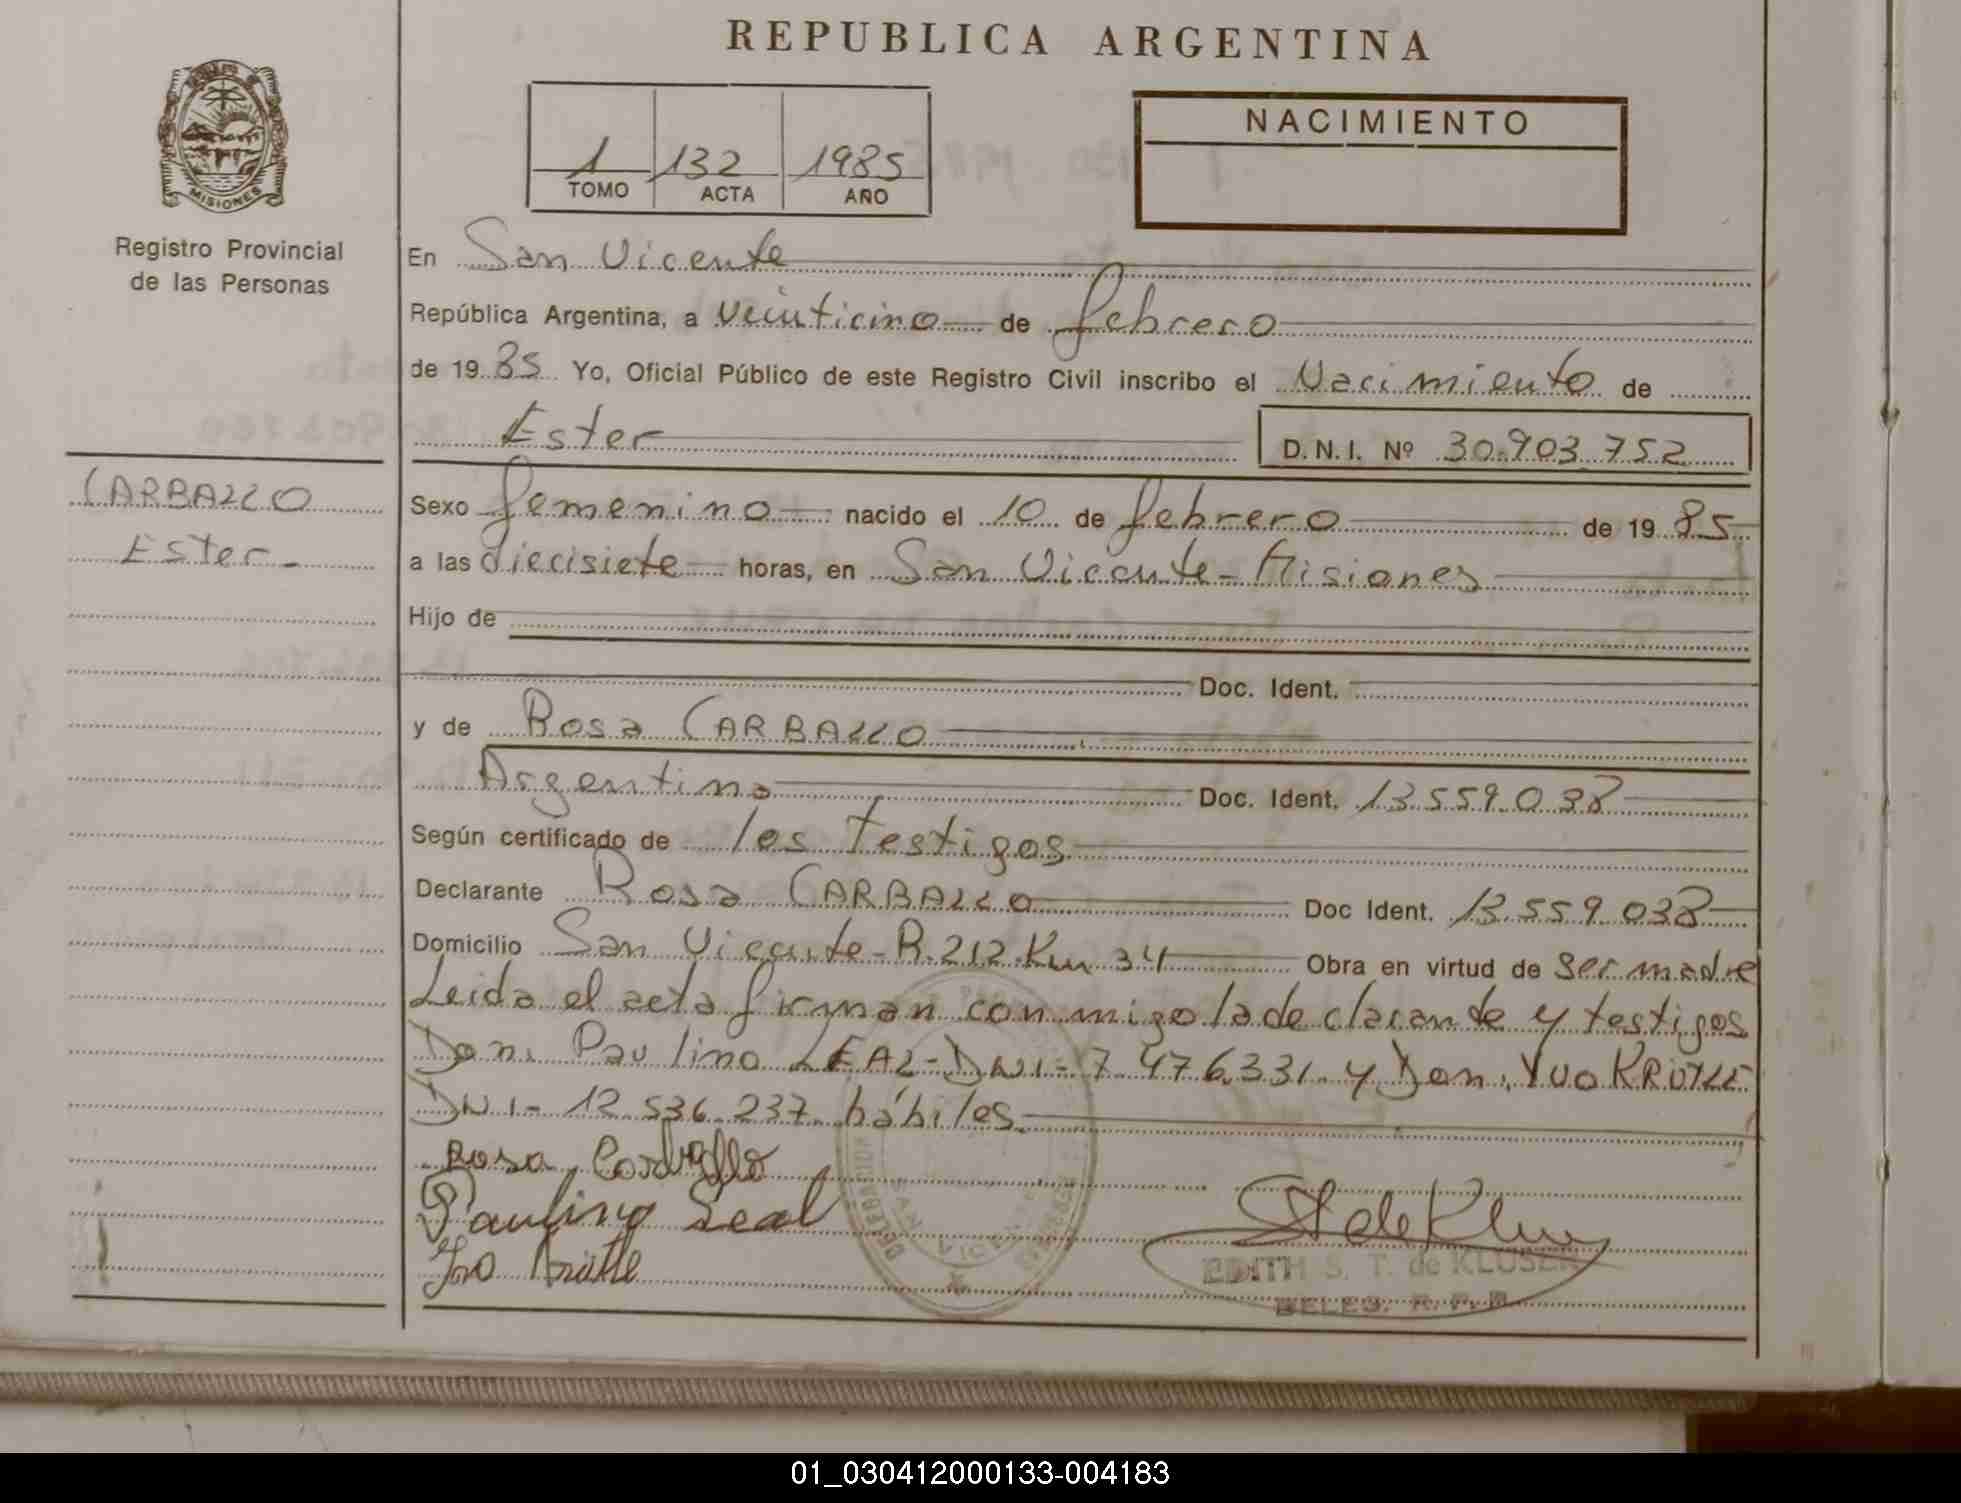 REPUBLICA ARGENTINA
MISIONES
Registro Provincial
de las Personas
1 132 1985
TOMO ACTA AÑO
NACIMIENTO
En San Vicente
República Argentina, a veinticinco de febrero
de 1985 Yo, Oficial Público de este Registro Civil inscribo el Nacimiento de
Ester D.N.I. Nº 30.903.752
CARBALLO
Ester
Sexo femenino nacido el 10 de febrero de 1985
a las diecisiete horas, en San Vicente - Misiones
Hijo de
Doc. Ident.
y de Rosa CARBALLO
Argentina Doc. Ident. 13.559.038
Según certificado de los Testigos
Declarante Rosa CARBALLO Doc Ident. 13.559.038
Domicilio San Vicente - R. 212 Km 34 Obra en virtud de ser madre
Leida el acta firman conmigo la declarante y testigos
Don: Paulino LEAL - DNI - 7.476.331 y Don: Yvo KRUTLE
DNI - 12.536.237 hábiles.
Rosa Carballo
Paulino Leal
EDITH S. T. de KLUSER
DELEG. R. P. P.
01_030412000133-004183